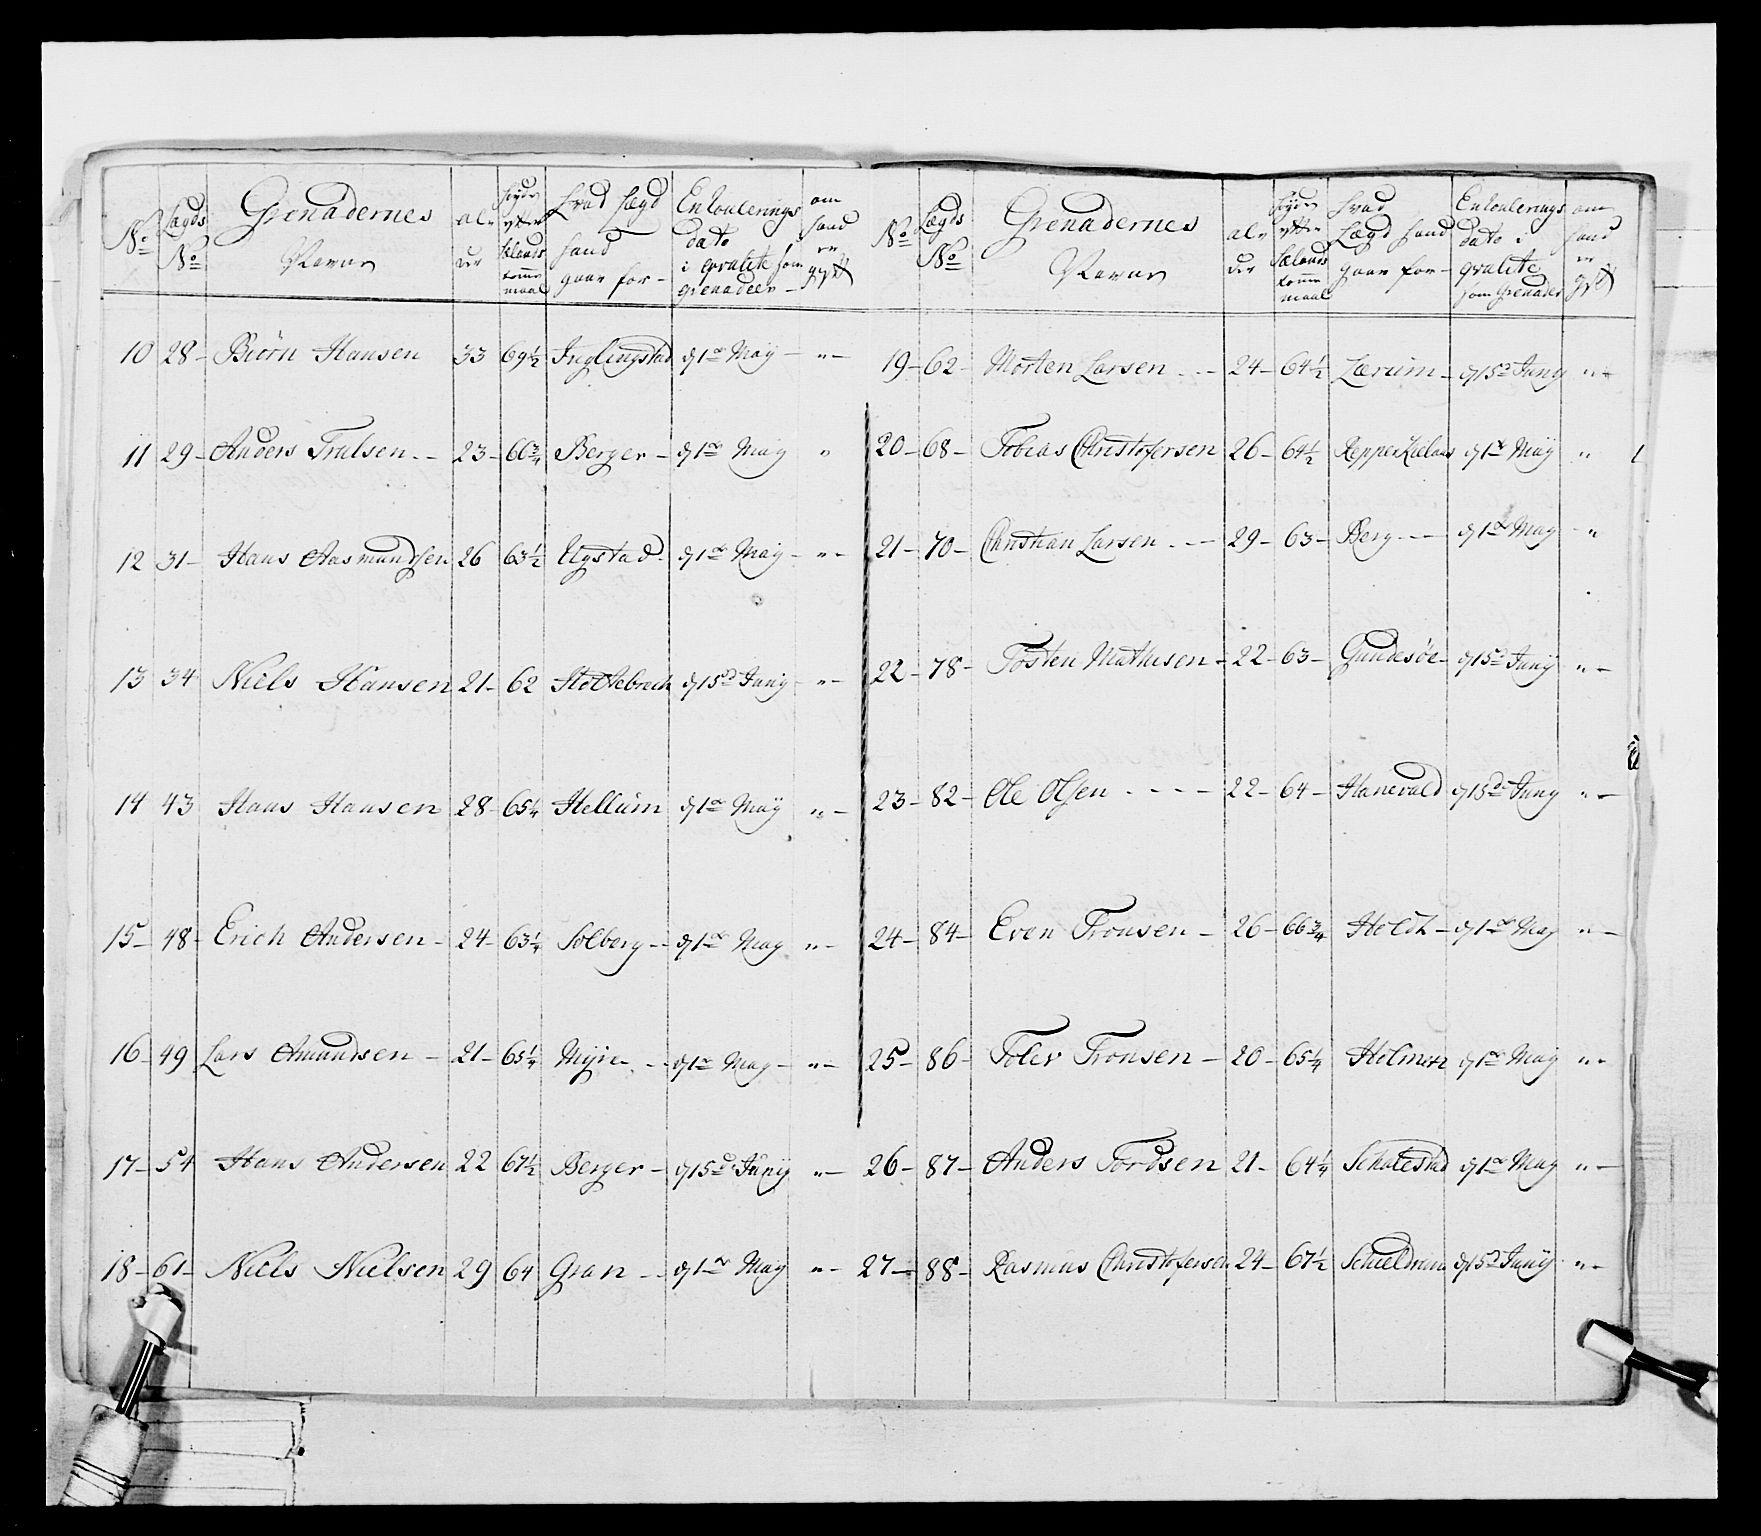 No Lægds No Grenadernes Navne al- der høyde efter Sælands tomme maal hvad Lægd hand gaar for- Enroulerings dato i qvalite som grenadeer- om hand er gyft
10 28- Biørn Hansen 33 69½ Inglingstad d 1de Maÿ - "-
11 29- Anders Trulsen - - 23- 66¾ Berger - d 1de May "
12 31- Hans Aasmundsen 26 63½ Ugstad- d 1de May - "-
13 34 Niels Hansen 21- 62 d 15d Juny - "-
14 43 Hans Hansen 28- 65¼ Hellum d 1de Maÿ "-
15- 48- Erich Andersen - 24- 63¼ Solberg - - d 1de May "-
16- 49 Lars Amundsen - 21- 65¼ Myre - - d 1de May - "-
17- 54 Hans Andersen 22 67½ Berger - d 15d Junÿ "-
18- 61- Niels Nielsen 29 64 Gran - - d 1de May "-
No Lægds No Grenadernes Navne al- der høyde efter Sælands tomme maal hvad Lægd hand gaar for- Enroulerings dato i qvalite som Grenader om hand er gyft
19- 62- Morten Larsen - - - 24- 64½ Lærum- d 15d Juny "-
20- 68- Tobias Christofersen 26- 64½ d 1de Maÿ "
21- 70- Christian Larsen - - - 29- 63- Berg - - - d 1de May - "
22- 78- Tosten Mathisen - 22- 63- Gundesöe- d 15d Junÿ "-
23- 82- Ole Olsen - - - - 22- 64- Hanevald d 15d Juny "-
24- 84- Even Tronsen - 26- 66¾ Holdt - d 1de May "-
25- 86- Tolev Tronsen - 20- 65¼ Holmen d 1de Maÿ "-
26- 87- Anders Tordsen 21- 64¼ Scholestad d 1de May "-
27- 88- Rasmus Christofersen 24- 67½ d 15d Junÿ "-